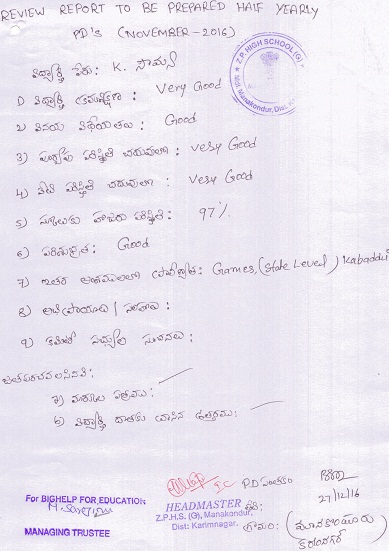 REVIEW REPORT TO BE PREPARED HALF YEARLY
PD's (NOVEMBER-2016)
Z.P. HIGH SCHOOL (G)
Manakondur, Dist.
విద్యార్థి పేరు: K. సౌమ్య
1) విద్యార్థి క్రమశిక్షణ : Very Good
2) వినయ విధేయతలు : Good
3) ప్రస్తుత పరిస్థితి చదువులలో : very Good
4) పరిస్థితి చదువులలో : Very Good
5) స్కూలుకు హాజరు పరిస్థితి : 97%
6) పరిశుభ్రత : Good
7) ఇతర అంశములలో ప్రావీణ్యత : Games, (State Level) Kabaddi
8) అభిప్రాయం / సలహా :
9) కమిటీ సభ్యుల సూచనలు :
జతపరచవలసినవి :
a) మార్కులు పత్రము :
b) విద్యార్థి దాతకు వ్రాసిన ఉత్తరము :
For BIGHELP FOR EDUCATION
MANAGING TRUSTEE
HEADMASTER
Z.P.H.S. (G), Manakondur,
Dist: Karimnagar.
P.D సంతకం
27/12/16
తేది :
గ్రామం : (మానకొండూరు
కరీంనగర్)